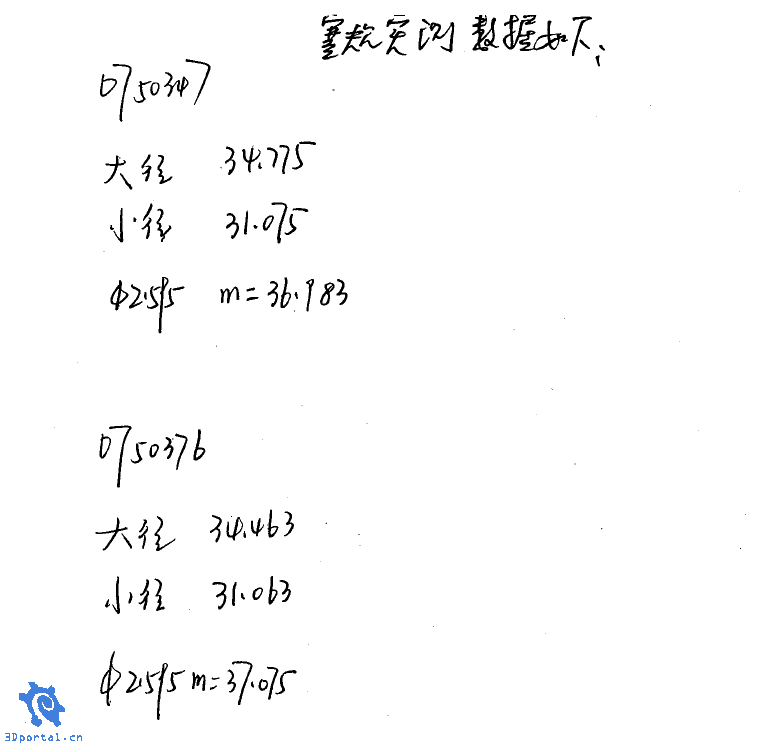 塞规实测数据如下:
0750347
大径 34.775
小径 31.075
Φ2.595 m=36.983
0750376
大径 34.463
小径 31.063
Φ2.595 m=37.075
3Dportal.cn